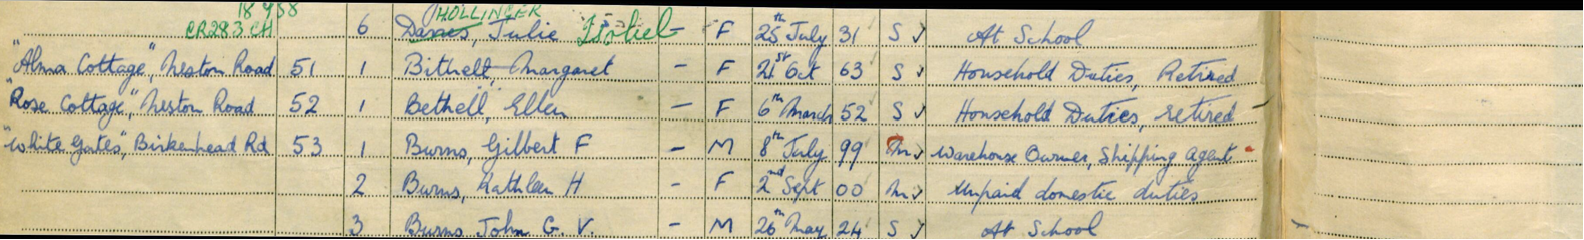 18 9 58 HOLLINGER
CR283 CH 6 Davies, Julie Isobel - F 25th July 31 S At School
"Alma Cottage", Neston Road 51 1 Bithell, Margaret - F 21st Oct 63 S Household Duties, Retired
"Rose Cottage", Neston Road 52 1 Bethell, Ellen - F 6th March 52 S Household Duties, retired
"White Gates", Birkenhead Rd 53 1 Burns, Gilbert F - M 8th July 99 M Warehouse Owner, Shipping Agent
2 Burns, Kathleen H - F 2nd Sept 00 M Unpaid domestic duties
3 Burns John G. V. - M 26th May 24 S At School